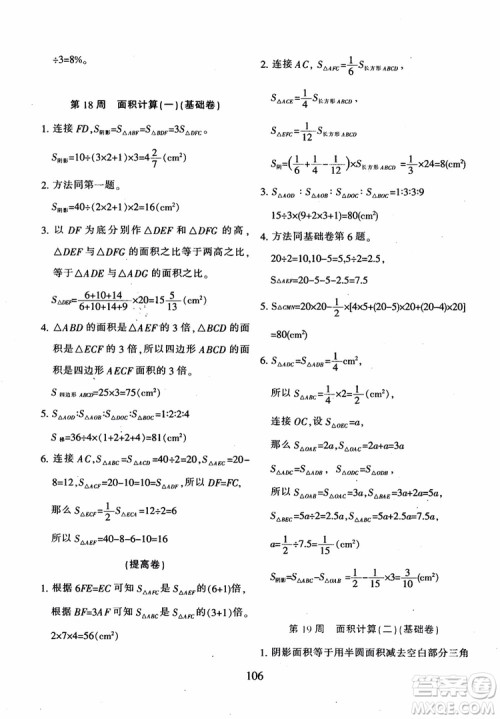 ÷3=8%。
第 18 周 面积计算(一)(基础卷)
1. 连接 FD,S阴影=S△ABF=S△BDF=S△DCF
S阴影=10÷(3×2+1)×3=4 2/7 (cm²)
2. 方法同第一题。
S阴影=40÷(2×2+1)×2=16(cm²)
3. 以 DF 为底分别作△DEF 和△DFG 的高,
△DEF 与△DFG 的面积之比等于两高之比,
等于△ADE 与△ADG 的面积之比。
S△DEF=(6+10+14)/(6+10+14+9)×20=15 5/13 (cm²)
4. △ABD 的面积是△AEF 的 3 倍,△BCD 的
面积是△ECF 的 3 倍,所以四边形 ABCD 的
面积是四边形 AECF 的 3 倍。
S四边形ABCD=25×3=75(cm²)
5. S△AOD∶S△AOB∶S△DOC∶S△BOC=1∶2∶2∶4
S梯=36÷4×(1+2+2+4)=81(cm²)
6. 连接 AC,S△ABC=S△ACD=40÷2=20,S△ECD=20-
8=12,S△ACF=20-10=10,所以 DF=FC,
那么 S△ECF=1/2 S△ECD=6,
所以 S△AEF=40-8-10-6=16(cm²)
(提高卷)
1. 根据 6FE=EC 可知 S△AFC=S△AEF×(6+1)倍,
根据 BF=3AF 可知 S△ABC=S△AFC×(3+1)倍。
2×7×4=56(cm²)
2. 连接 AC,S△AFC=1/6 S长方形ABCD
S△ACE=1/4 S长方形ABCD
S△EFC=1/12 S长方形ABCD
S阴=(1/6+1/4-1/12)×S长方形ABCD=1/3×24=8(cm²)
3. S△AOD∶S△DOC∶S△AOB∶S△BOC=1∶3∶3∶9
15÷3×(1+9+3+3)=80(cm²)
4. 方法同基础卷第 6 题。
20÷2=10 10-5=5 5÷2=2.5
20-5-5-2.5=7.5
5. S△CMN=20×20-1/2×[4×(20-5)+20×5+20×(20-4)]
=80(cm²)
6. S△ADC=1/4 S△ADB
所以 S△ABC=1/4×2=1/2(cm²)
连接 OC,设 S△OEC=a,
那么 S△OEC=S△AOE=a
因为 S△ADC=1/4 S△ADB,所以 S△AOC=1/4 S△OAB
那么 S△OAB=4S△OAC=3a,S△BAE=3a(cm²)
因为 S△BAE=S△BEC,所以 7.5a=1/2
a=1/2÷7.5=1/15(cm²)
S阴影=S△BEC-S△OEC=3a-a=2a=2/15(cm²)
第 19 周 面积计算(二)(基础卷)
1. 阴影面积等于用半圆面积减去空白部分三角
106